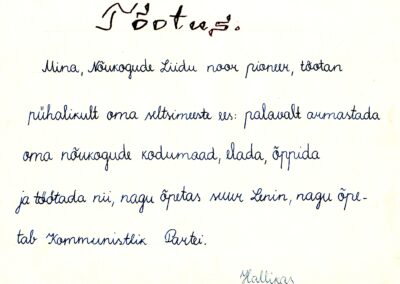 Tõotus.
Mina, Nõukogude Liidu noor pioneer, tõotan
pühalikult oma seltsimeeste ees: palavalt armastada
oma nõukogude kodumaad, elada, õppida
ja töötada nii, nagu õpetas suur Lenin, nagu õpe-
tab Kommunistlik Partei.
Hallikas